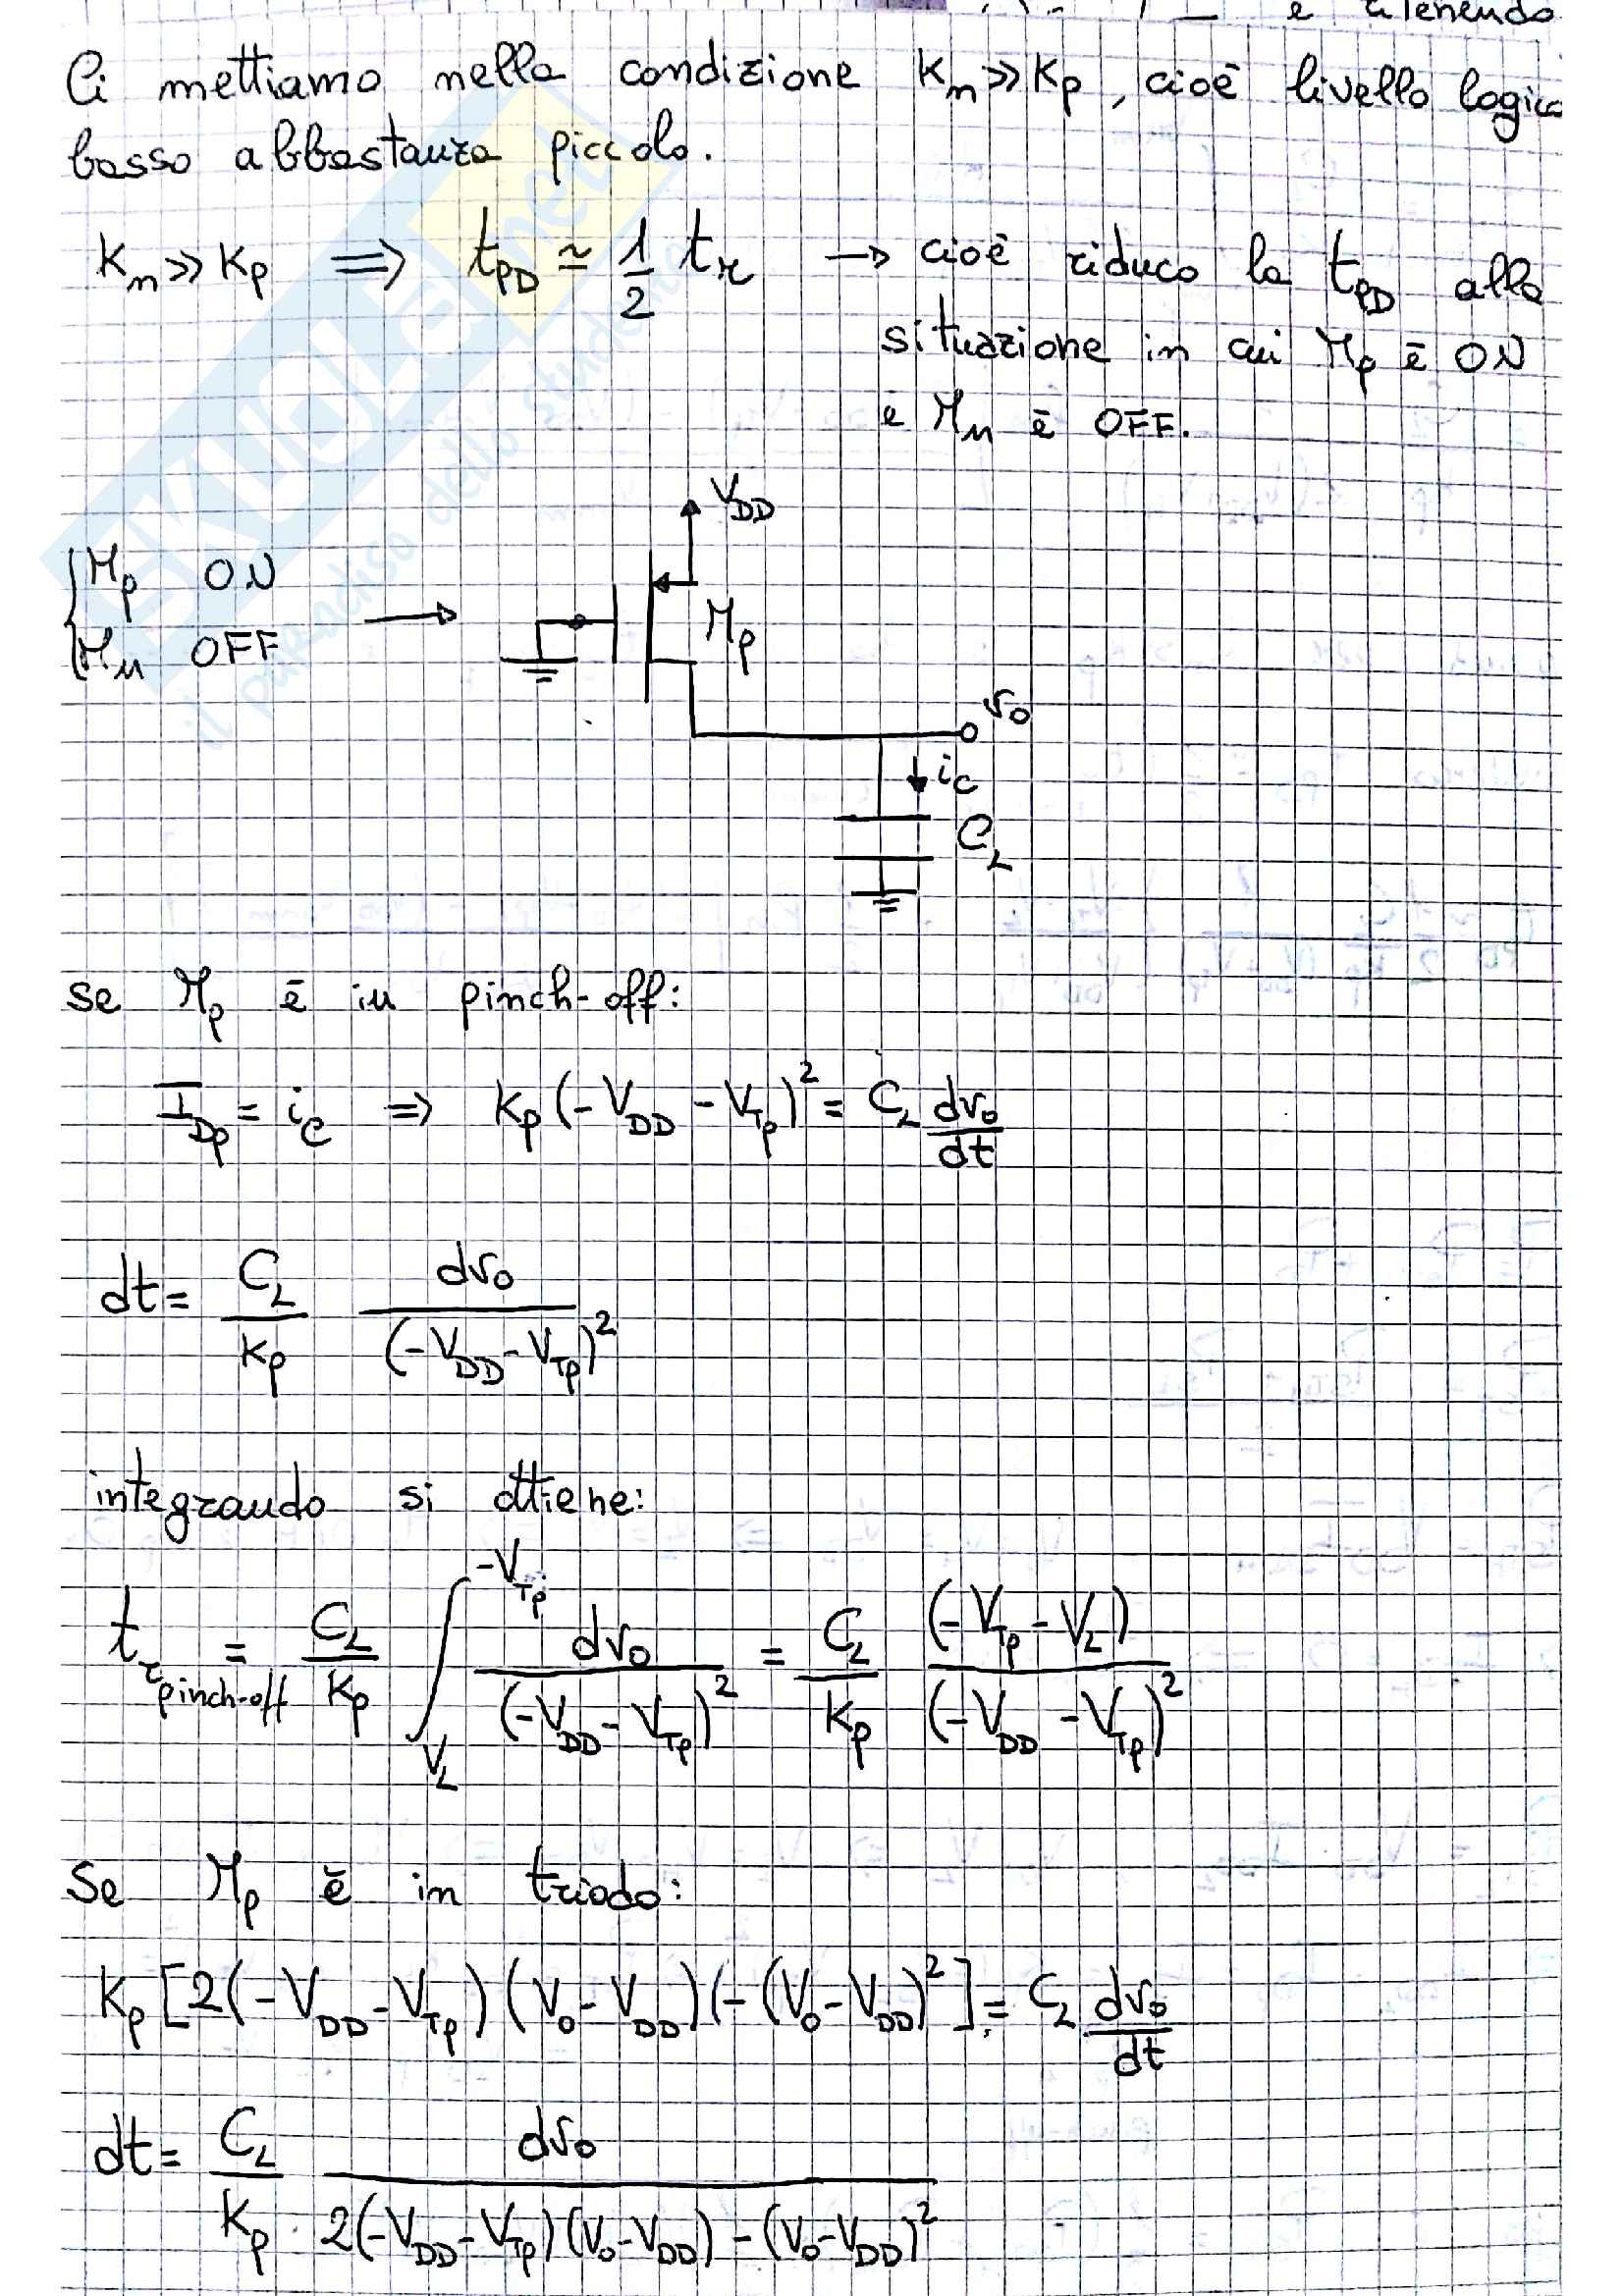 e ritenendo
Ci mettiamo nella condizione Kn >> Kp, cioè livello logico
basso abbastanza piccolo.
Kn >> Kp ⟹ tPD ≃ 1/2 tr → cioè riduco la tPD alla
situazione in cui Mp è ON
e Mn è OFF.
VDD
Mp ON
Mn OFF
Mp
vo
ic
CL
se Mp è in pinch-off:
IDp = ic ⇒ Kp (-VDD - VTp)² = CL dvo/dt
dt = CL/Kp dvo/(-VDD - VTp)²
integrando si ottiene:
tr pinch-off = CL/Kp ∫_{VL}^{-VTp} dvo/(-VDD - VTp)² = CL/Kp (-VTp - VL)/(-VDD - VTp)²
Se Mp è in triodo:
Kp [2(-VDD - VTp)(Vo - VDD)(-(Vo - VDD)²] = CL dvo/dt
dt = CL/Kp dvo/2(-VDD - VTp)(Vo - VDD) - (Vo - VDD)²
SKUOLA.net
il paradiso dello studente